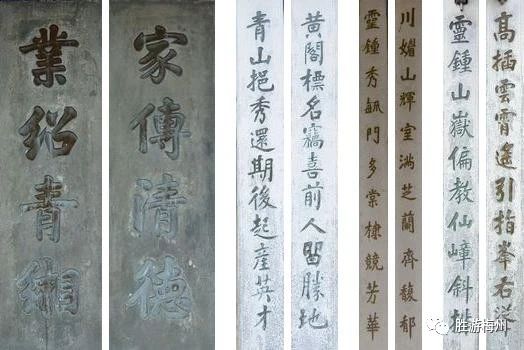 高插雲霄遙引指峯右
靈鍾山嶽偏教仙嶂斜
川媚山輝室滿芝蘭齊馥郁
靈鍾秀毓門多棠棣競芳華
黃閣標名竊喜前人留勝地
青山挹秀還期後起產英才
家傳清德
業紹青緗
胜游梅州